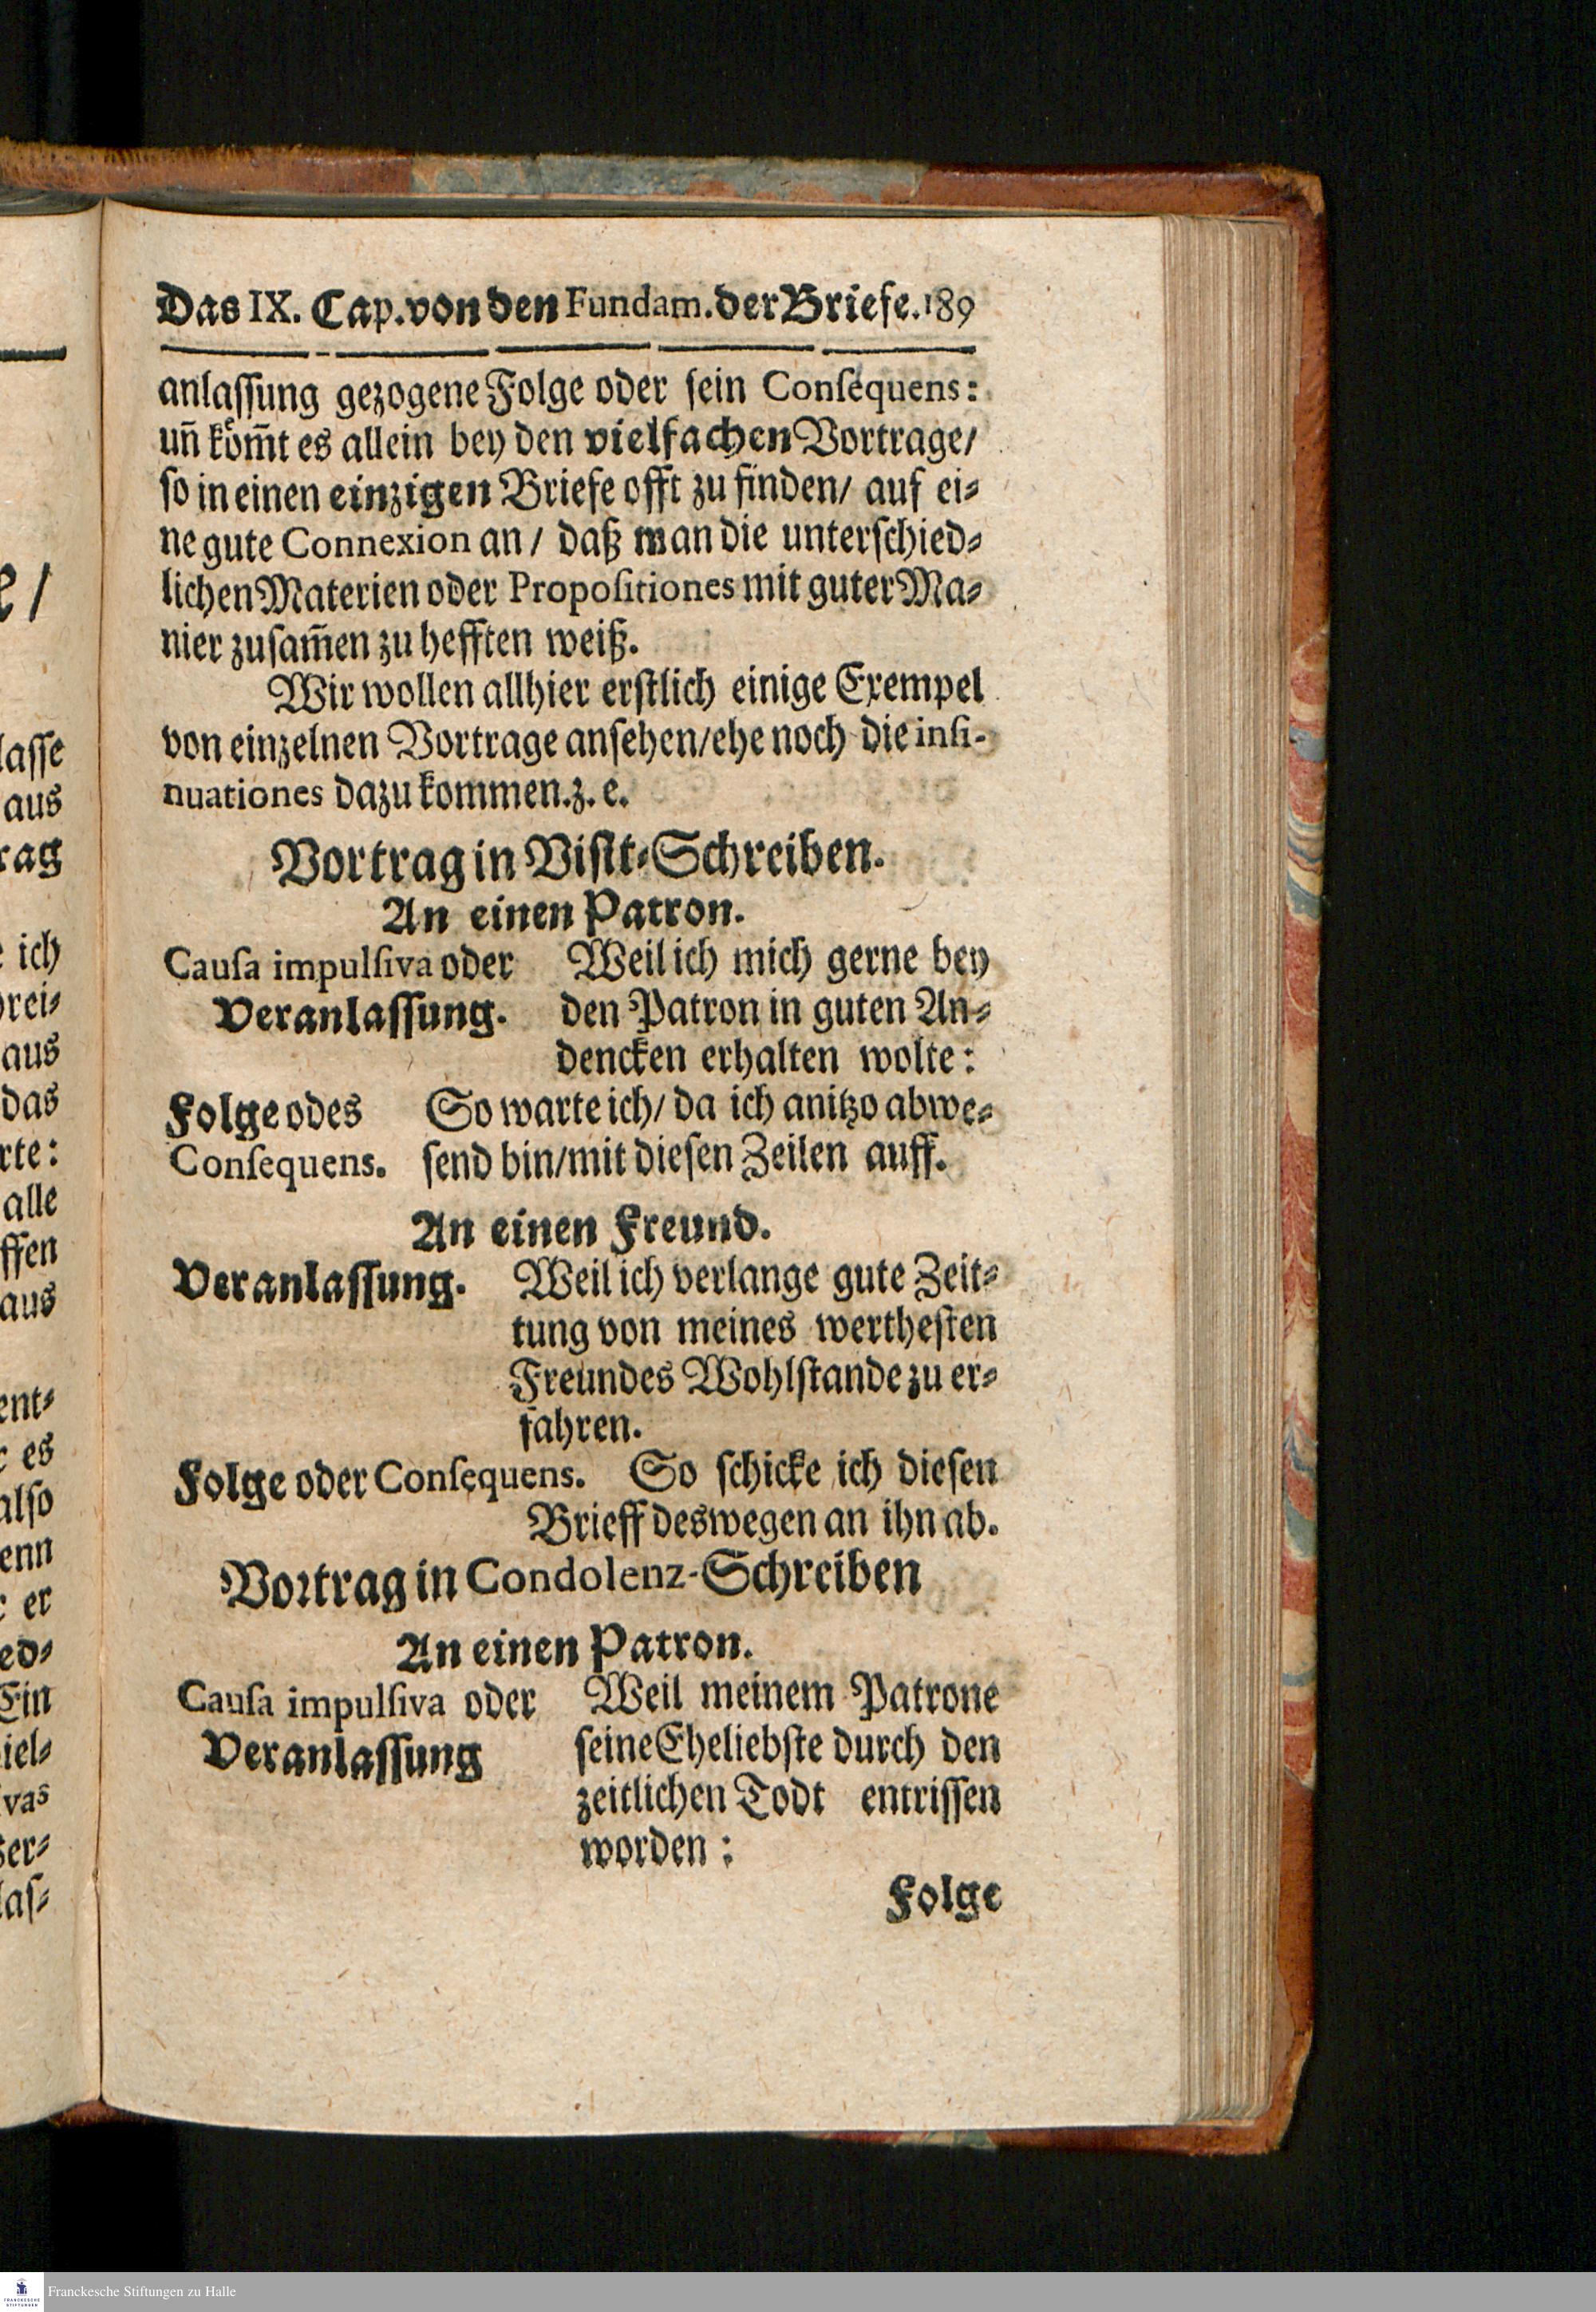 Das IX. Cap. von den Fundam. der Briefe. 189
anlaſſung gezogene Folge oder ſein Conſequens:
un̄ köm̄t es allein bey den vielfachen Vortrage/
ſo in einen einzigen Briefe offt zu finden/ auf ei⸗
ne gute Connexion an / daß man die unterſchied⸗
lichen Materien oder Propoſitiones mit guter Ma⸗
nier zuſam̄en zu hefften weiß.
Wir wollen allhier erſtlich einige Exempel
von einzelnen Vortrage anſehen/ehe noch die inſi-
nuationes dazu kommen. z. e.
Vortrag in Viſit⸗Schreiben.
An einen Patron.
Cauſa impulſiva oder Weil ich mich gerne bey
Veranlaſſung. den Patron in guten An⸗
dencken erhalten wolte:
Folge odes So warte ich/ da ich anitzo abwe⸗
Conſequens. ſend bin/mit dieſen Zeilen auff.
An einen Freund.
Veranlaſſung. Weil ich verlange gute Zeit⸗
tung von meines wertheſten
Freundes Wohlſtande zu er⸗
fahren.
Folge oder Conſequens. So ſchicke ich dieſen
Brieff deswegen an ihn ab.
Vortrag in Condolenz-Schreiben
An einen Patron.
Cauſa impulſiva oder Weil meinem Patrone
Veranlaſſung ſeine Eheliebſte durch den
zeitlichen Todt entriſſen
worden :
Folge
Franckesche Stiftungen zu Halle